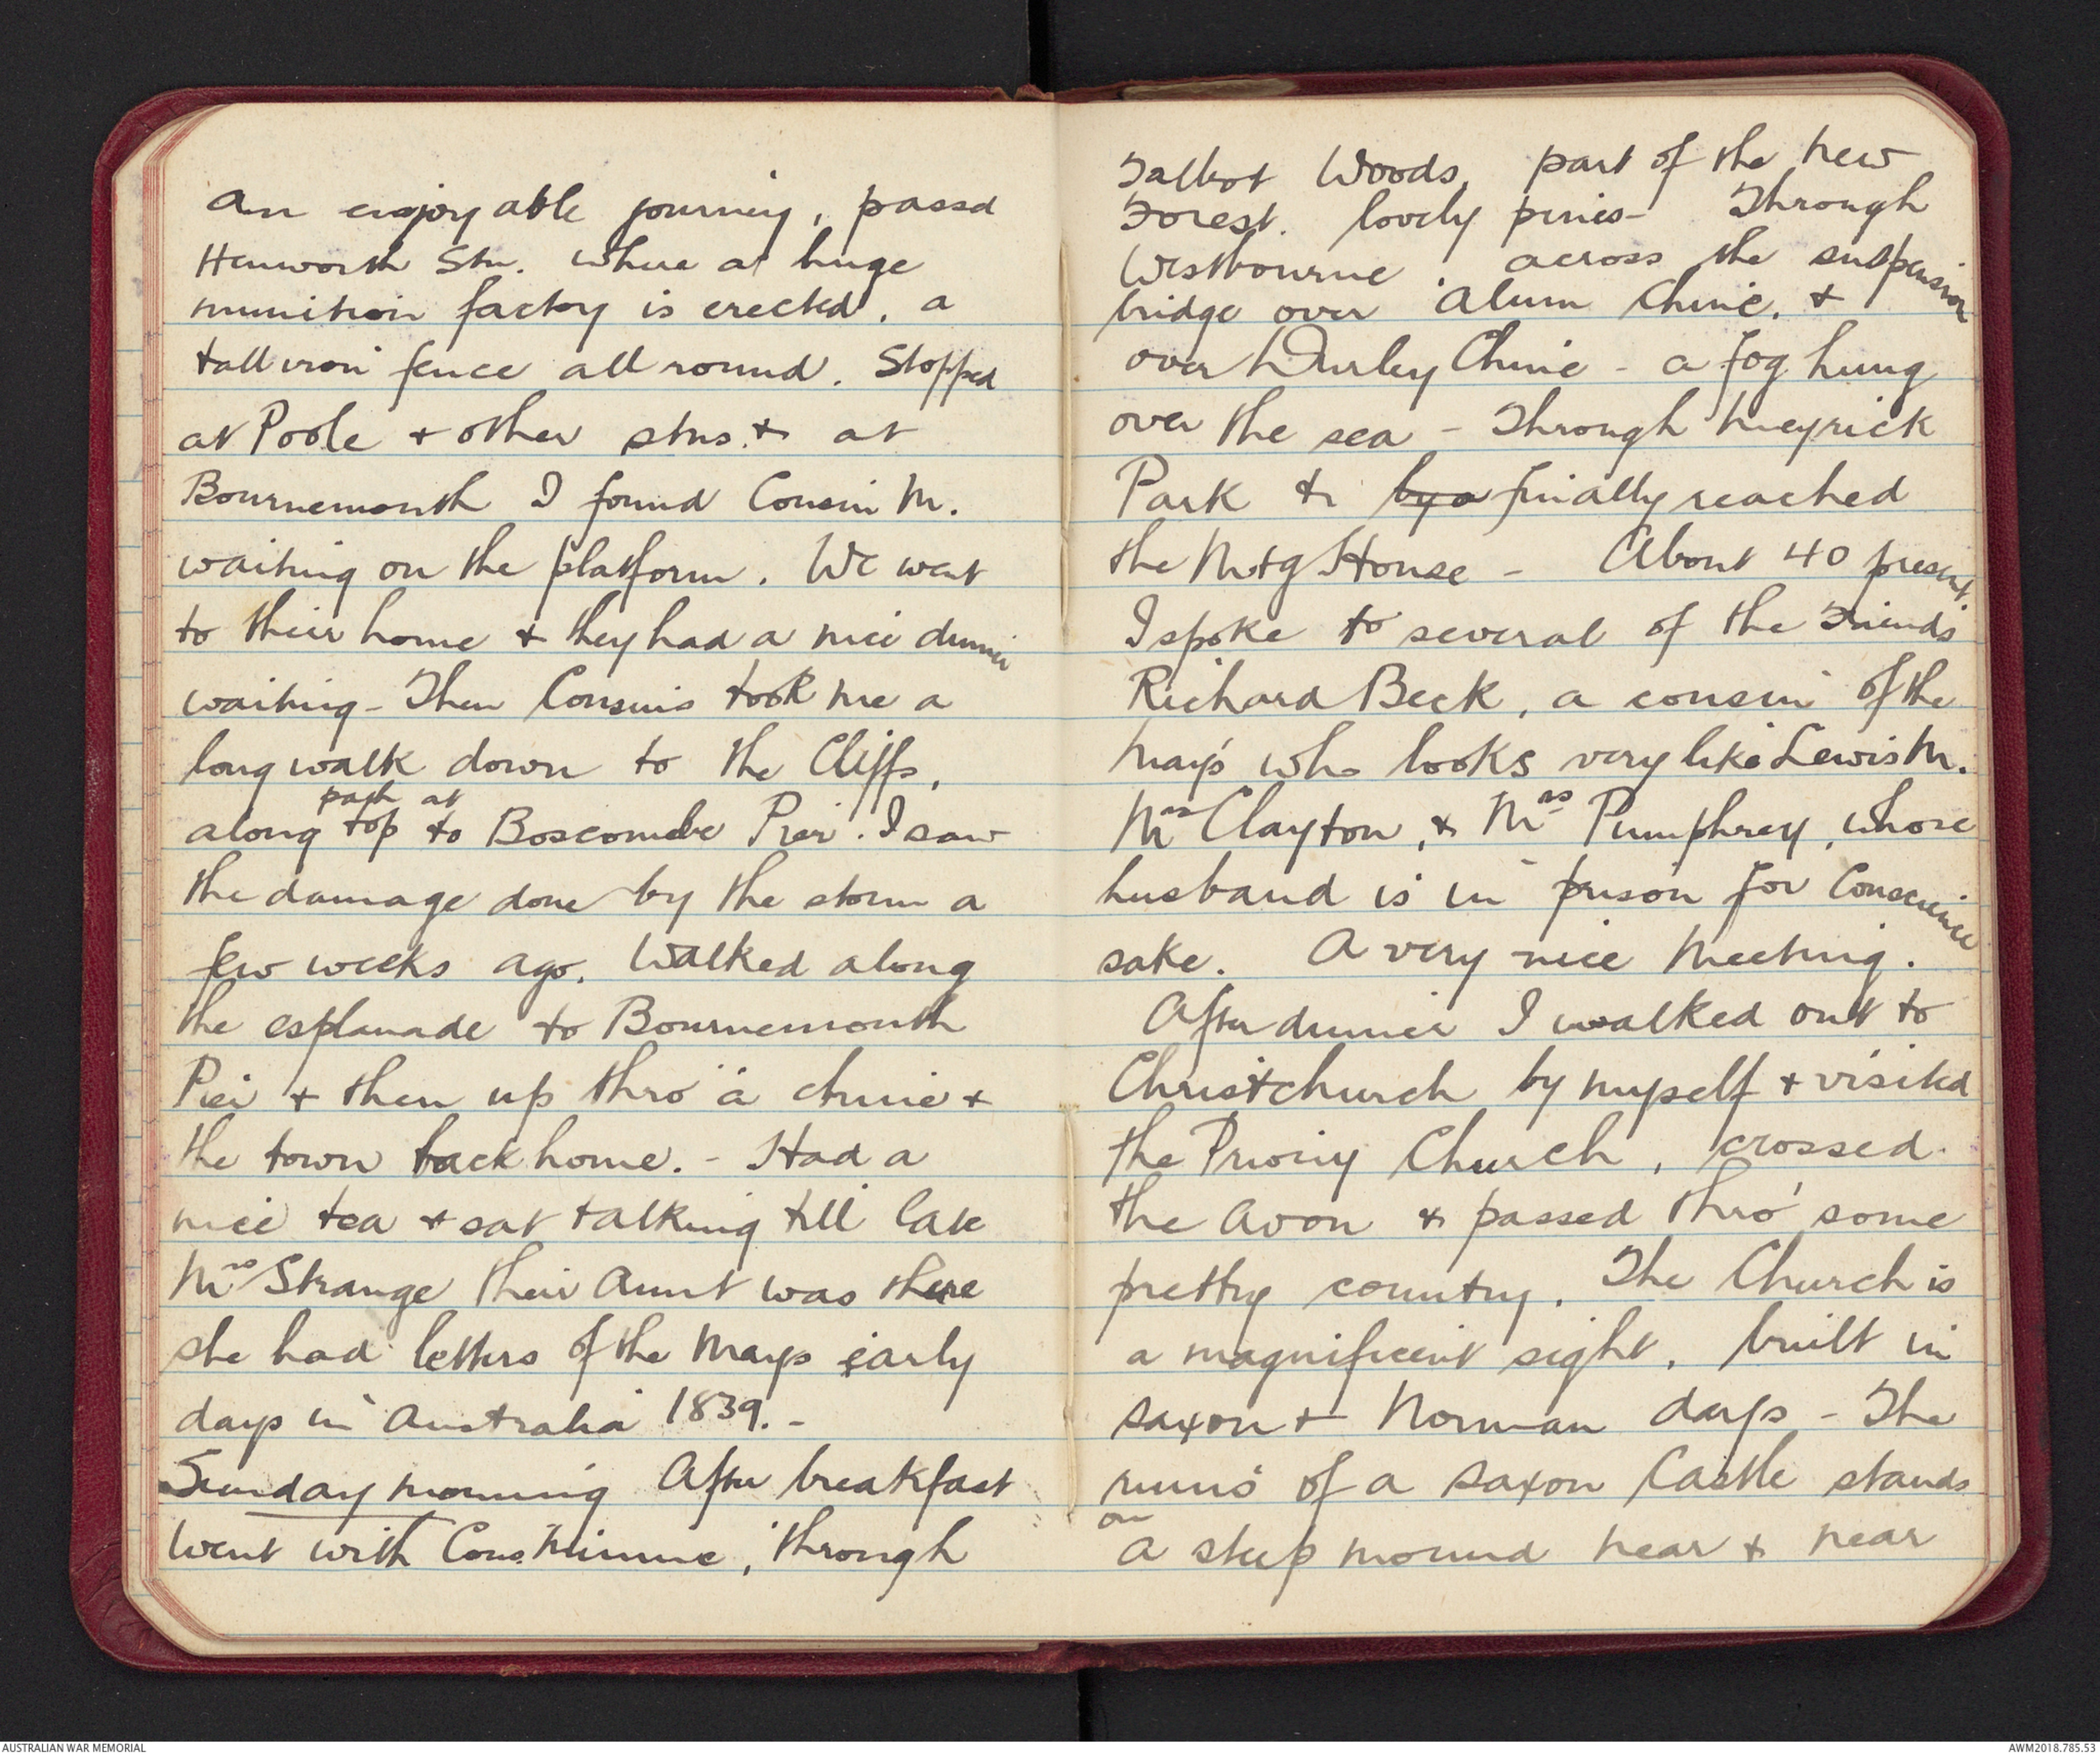 An enjoyable journey, passd
Henworth Stn. where a huge
munition factory is erected, a
tall iron fence all round. Stopped
at Poole + other stns. + at
Bournemouth I found Cousin M.
waiting on the platform. We went
to their home + they had a nice dinner
waiting - Then Cousins took me a
long walk down to the Cliffs,
path at
along top to Boscombe Pier. I saw
the damage done by the storm a
few weeks ago. Walked along
the esplanade to Bournemouth
Pier + then up thro' a chine +
the town back home. - Had a
nice tea + sat talking till late
Mrs Strange their Aunt was there
she had letters of the Mays early
days in Australia 1839. -
Sunday morning After breakfast
went with Cous. Minnie, through
Talbot Woods, part of the New
Forest. lovely pines - Through
Westbourne, across the suspension
bridge over Alum Chine, +
over Durley Chine - a fog hung
over the sea - Through Meyrick
Park + by a finally reached
the Mtg House - About 40 present.
I spoke to several of the Friends
Richard Beck, a cousin of the
Mays who looks very like Lewis M.
Mrs Clayton, + Mrs Pumphrey, whose
husband is in prison for Conscience
sake. A very nice Meeting.
After dinner I walked out to
Christchurch by myself + visited
the Priory Church, crossed
the Avon + passed thro' some
pretty country. The Church is
a magnificent sight, built in
Saxon + Norman days - The
ruins of a Saxon Castle stands
on
a steep mound near + near
AUSTRALIAN WAR MEMORIAL
AWM2018.785.53